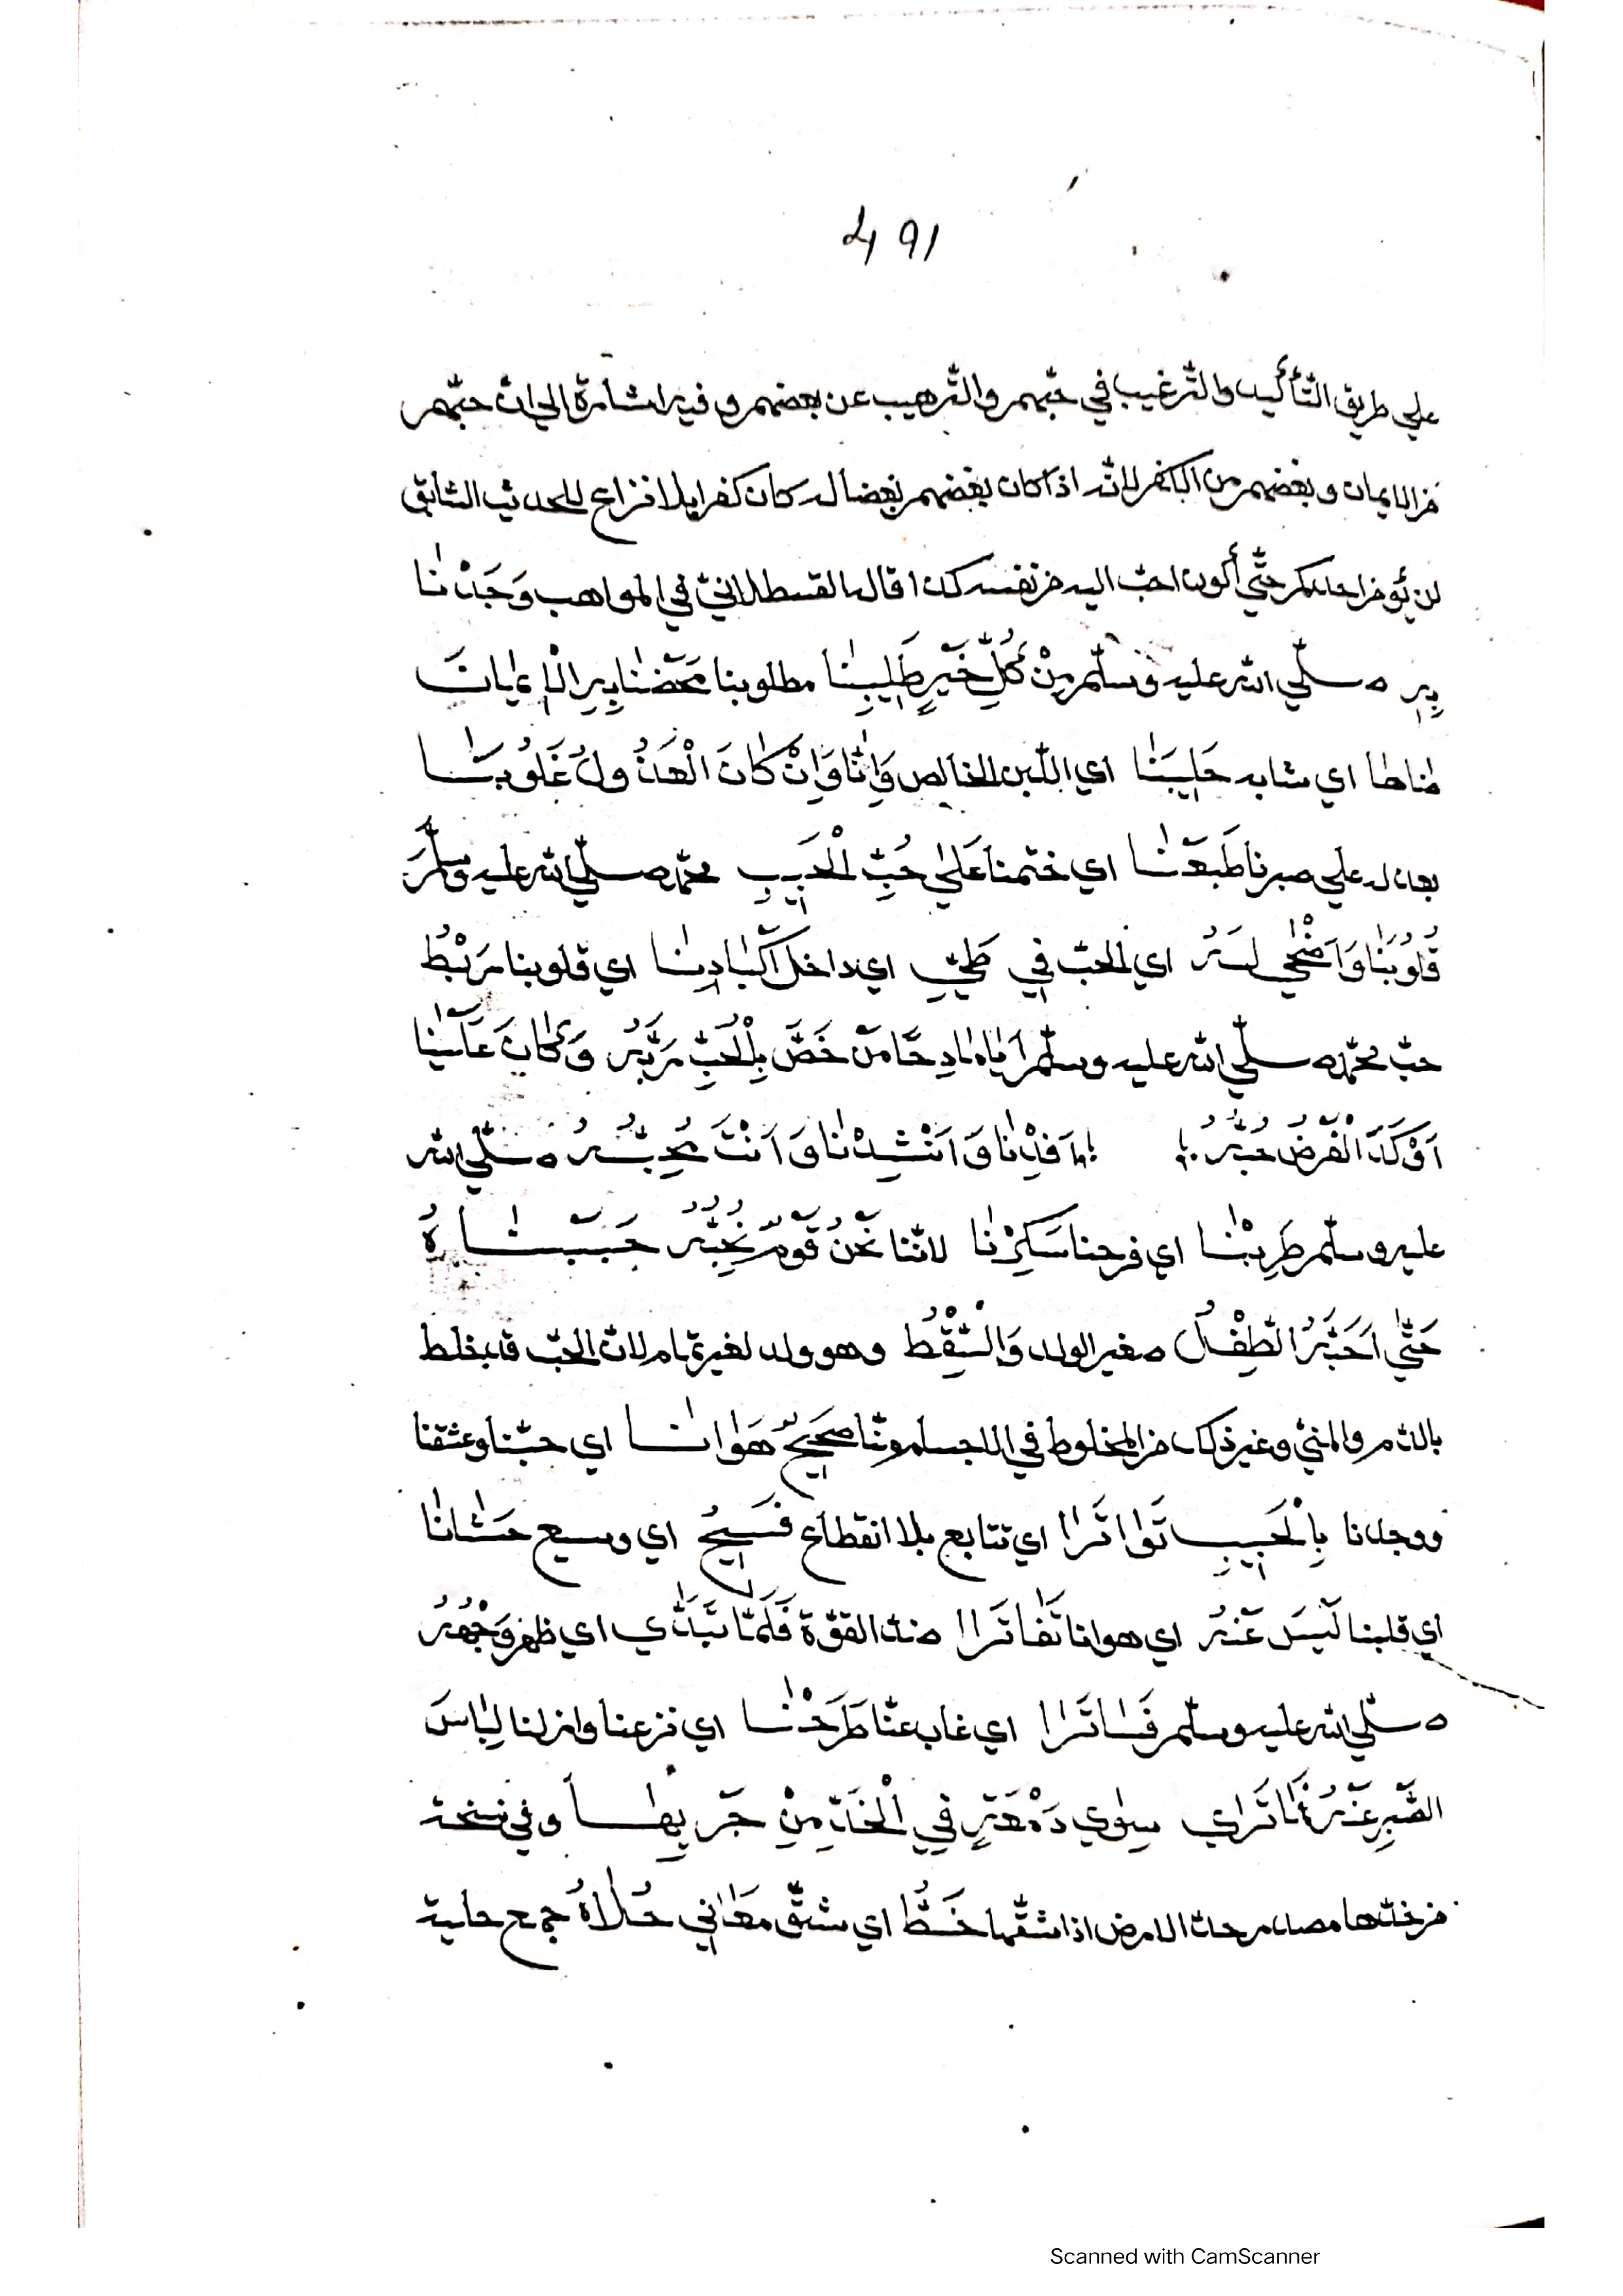 491
علي طريق التّأكيد والتّرغيب في حبّهم والتّرهيب عن بعضهم و فيه اشارة الي ان حبّهم
من الايمان و بغضهم من الكفر لانّه اذا كان بغضهم بغضا له كان كفرا بلا نزاع للحديث السّابق
لن يّؤمن احدكم حتّي أكون احبّ اليه من نفسه كذا قال القسطلانيّ في المواهب وَجَدْنَا
بِهِ صلّي الله عليه وسلّم مِنْ كُلِّ خَيْرٍ طَلِيبَنَا مطلوبنا مَحَضْنَا بِهِ الْاِيمَانَ
اي مشابه حَلِيبَنَا اي اللّبن الخالص وَاِنَّا وَاِنْ كَانَ الْعَذُولُ غَلُوبَنَا
بعذله علي صبرنا طَبَعْنَا اي ختمنا عَلَي حُبِّ الْحَبِيبِ محمّد صلّي الله عليه وسلّم
قُلُوبَنَا وَاَضْحَي لَهُ اي الحبّ فِي طَيِّ اي داخل اَكْبَادِنَا اي قلوبنا رَبْطُ
حبّ محمّد صلّي الله عليه وسلّم اَيَا مَادِحًا مَنْ خَصَّ بِالْحُبِّ رَبُّهُ وَكَانَ عَلَيْنَا
اَوْكَدَ الْفَرْضِ حُبُّهُ اَفِدْنَا وَاَنْشِدْنَا وَاَنْتَ مُحِبُّهُ صلّي الله
عليه وسلّم طَرِبْنَا اي فرحنا سَكِرْنَا لانّنا نَحْنُ قَوْمٌ نُحِبُّهُ حَبَبْنَاهُ
حَتَّي اَحَبَّهُ الطِّفْلُ صغير الولد وَالسِّقْطُ وهو ولد لغير تمام لان الحبّ قد يخلط
بالدّم والمنيّ وغير ذلك من المخلوط في الجسد صَحِيحٌ هَوَانَا اي حبّنا وعشقنا
ووجدنا بِالْحَبِيبِ تَوَاتَرَا اي تتابع بلا انقطاع فَسِيحُ اي وسيع حَشَانَا
اي قلبنا لَيْسَ عَنْهُ اي هوانا تَفَاتَرَا ضد القوّة فَلَمَّا تَبَدَّي اي ظهر وَجْهُهُ
صلّي الله عليه وسلّم فَتَرَا اي غاب عنّا طَرَحْنَا اي نزعنا وازلنا لِبَاسَ
الصَّبْرِ عَنْهُ فَمَا تَرَاي سِوَي دَمْعَةٍ فِي الْخَدِّ مِنْ جَرْيِهَا وفي نسخة
من خدّها مصدر خدّ الارض اذا شقّها خَطُّ اي شقّ مَعَانِي حُلَاهُ جمع حلية
Scanned with CamScanner